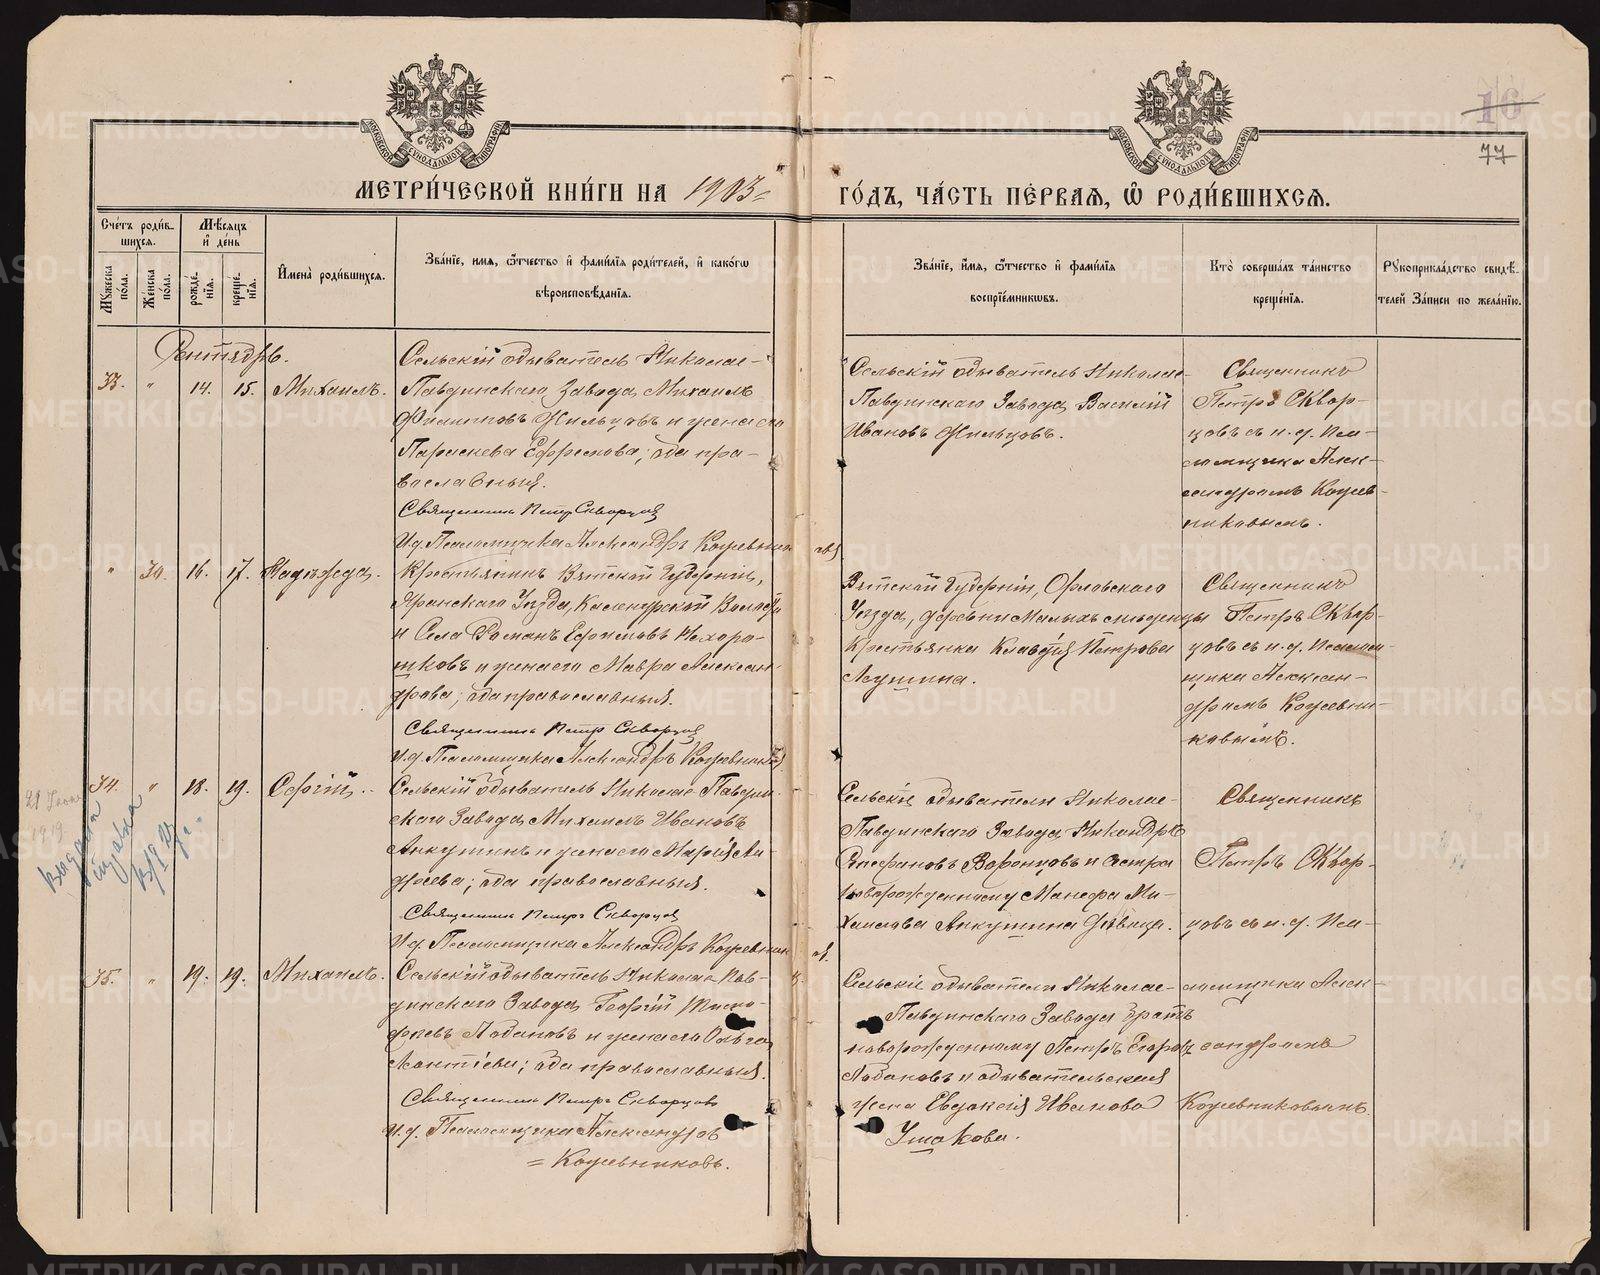 16
77
МОСКОВСКОЙ СѴНОДАЛЬНОЙ ТИПОГРАФІИ
МОСКОВСКОЙ СѴНОДАЛЬНОЙ ТИПОГРАФІИ
МЕТРИ́ЧЕСКОЙ КНИ́ГИ НА 1903 ГО́ДЪ, ЧА́СТЬ ПЕ́РВАЯ, Ѡ РОДИ́ВШИХСЯ.
Сче́тъ роди́в-
шихся.
Мꙋжеска по́ла.
Же́нска по́ла.
Мѣ́сяцъ
и де́нь
рожде́-
нїя.
креще́-
нїя.
Имена̀ роди́вшихся.
Зва́нїе, имя, ѻ҆́тчество и фами́лїя роди́телей, и како́гѡ
вѣроисповѣ́данїя.
Зва́нїе, имя, ѻ҆́тчество и фами́лїя
воспрїе́мникѡвъ.
Кто̀ соверша́лъ та́инство
креще́нїя.
Рꙋкоприкла́дство свидѣ́-
телей За́писи по жела́нїю.
Сентябрь.
33. " 14. 15. Михаилъ.
Сельскій обыватель Николае-
Павдинскаго Завода, Михаилъ
Филиповъ Жильцовъ и жена его
Параскева Ефремова; оба пра-
вославныя.
Священникъ Петр Скворцов
И.д. Псаломщика Александръ Кожевников
Сельскій обыватель Николае-
Павдинскаго Завода Василій
Ивановъ Жильцовъ.
Священникъ
Петръ Сквор-
цовъ съ и.д. Пса-
ломщика Алек-
сандромъ Кожев-
никовымъ.
" 30. 16. 17. Надежда.
Крестьянинъ Вятской Губерніи,
Яранскаго Уѣзда, Волости
и Села Романъ Ефимовъ Нехоро-
шковъ и жена его Мавра Алексан-
дрова; оба православныя.
Священникъ Петр Скворцов
И.д. Псаломщика Александръ Кожевников
Вятской Губерніи, Орловскаго
Уѣзда, деревни Малыхъ
Крестьянка Клавдія Петрова
Священникъ
Петръ Сквор-
цовъ съ и.д. Псалом-
щика Алексан-
дромъ Кожевни-
ковымъ.
34. " 18. 19. Сергій.
Сельскій обыватель Николае-Павдин-
скаго Завода, Михаилъ Ивановъ
Анкушинъ и жена его Марія Ан-
дреева; оба православныя.
Священникъ Петръ Скворцов
И.д. Псаломщика Александръ Кожевников.
Сельскіе обыватели Николае-
Павдинскаго Завода, Никандръ
Стефановъ Воронцовъ и сестра
новорожденному Манефа Ми-
хаилова Анкушина девица.
Священникъ
Петръ Сквор-
цовъ съ и.д. Пса-
1919
Выдана
справка
35. " 19. 19. Михаилъ.
Сельскій обыватель Николае-Пав-
динскаго Завода, Георгій Тимо-
феевъ Лобановъ и жена его Ольга
Леонтіева; оба православныя.
Священникъ Петръ Скворцовъ
И.д. Псаломщика Александръ
= Кожевниковъ.
Сельскіе обыватели Николае-
Павдинскаго Завода братъ
новорожденному Петръ Егоровъ
Лобановъ и обывательская
жена Евдокія Иванова
Ушакова.
ломщика Алек-
сандромъ
Кожевниковымъ.